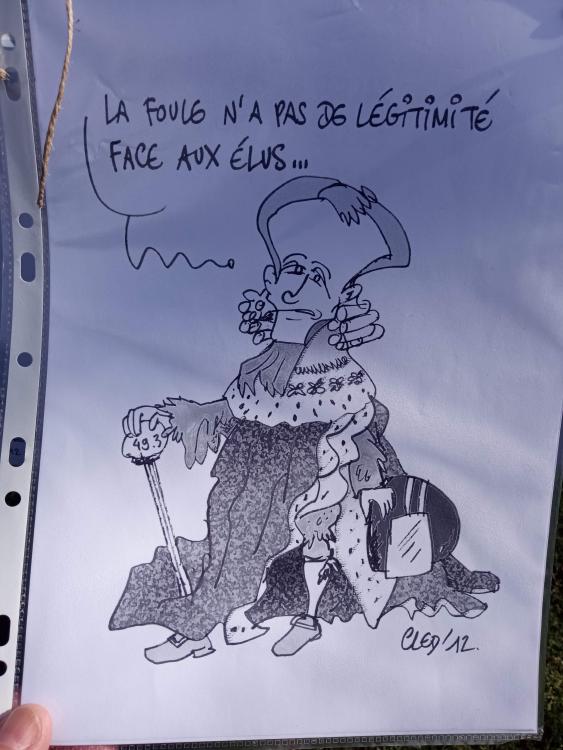 LA FOULE N'A PAS DE LÉGITIMITÉ
FACE AUX ÉLUS...
49.3
CLED'12.